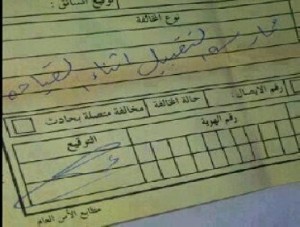 توقيع السائق :
نوع المخالفة
ممارسة التقبيل اثناء القيادة
رقم الايصال : حالة المخالفة مخالفة متصلة بحادث
رقم الهوية التوقيع
مطابع الأمن العام